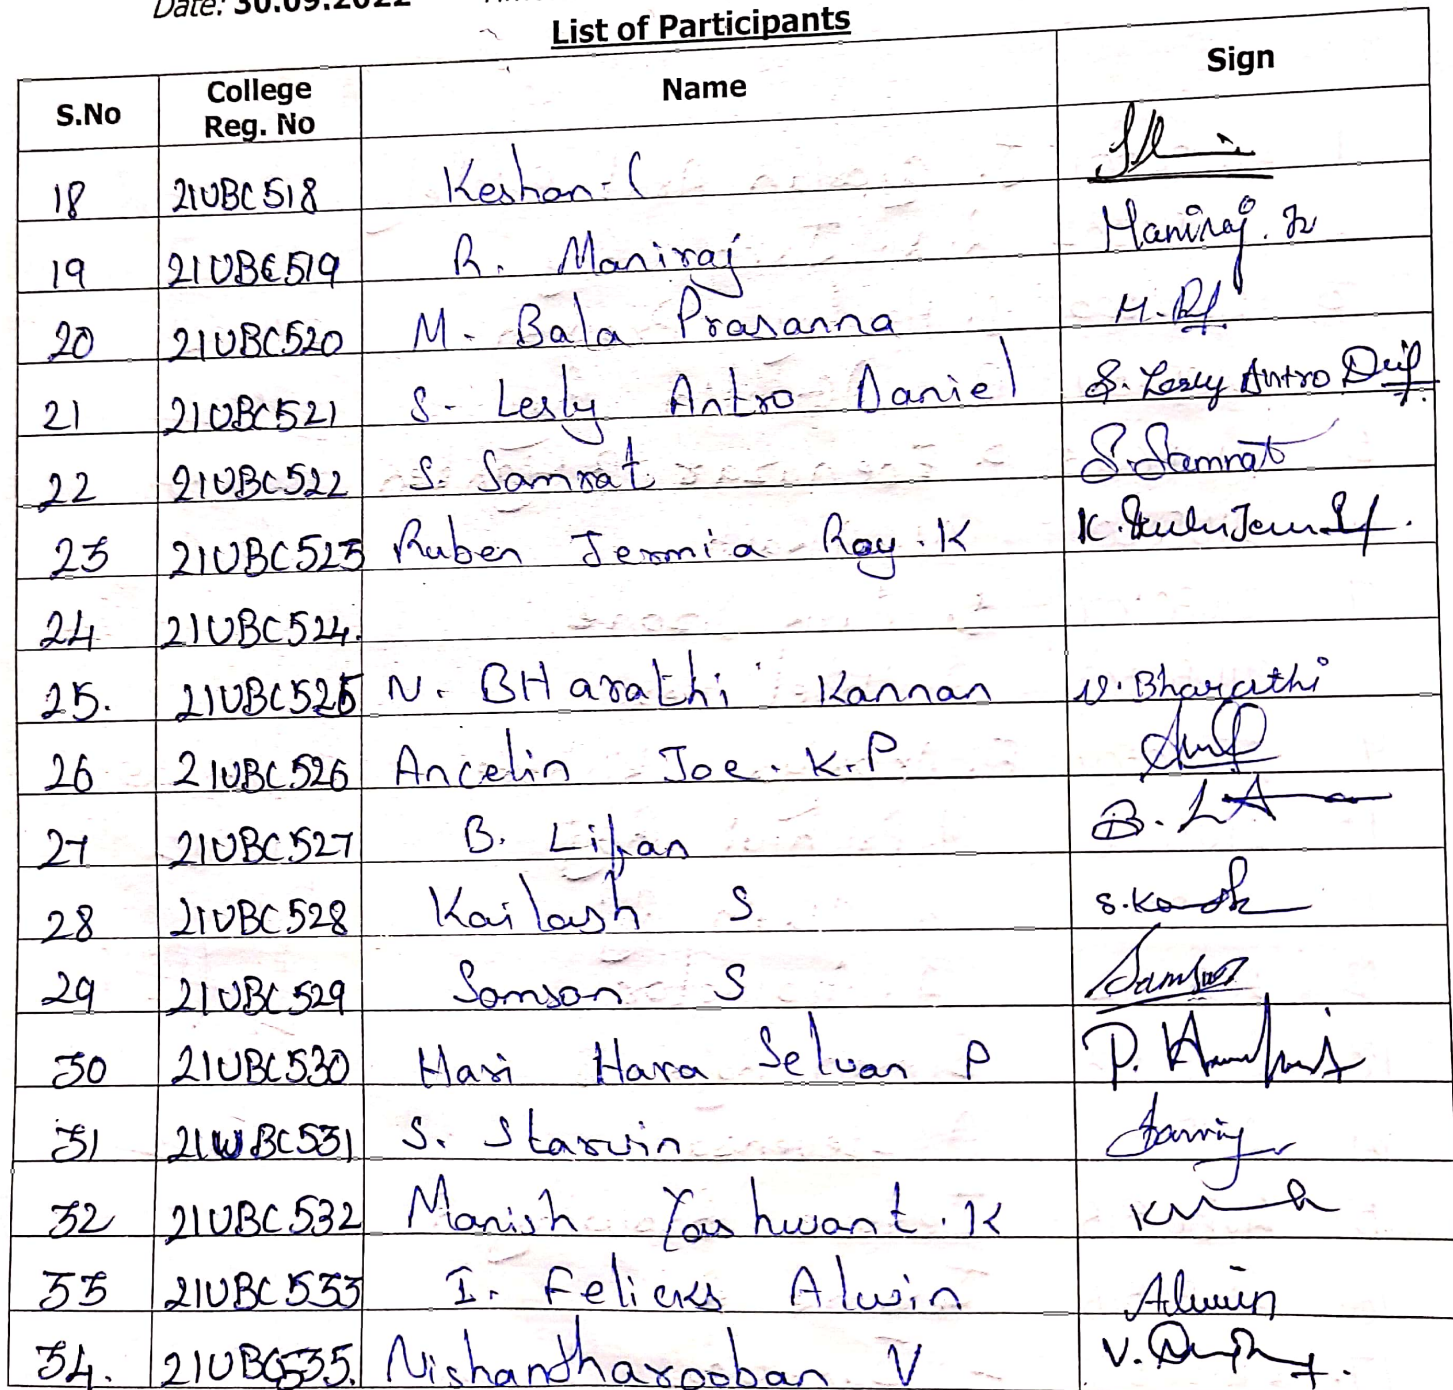 Date: 30.09.2022
List of Participants
S.No College Reg. No Name Sign
18 21UBC518 Keshan. C
19 21UBC519 R. Maniraj Maniraj. R
20 21UBC520 M. Bala Prasanna M.
21 21UBC521 S. Lesly Antro Daniel S. Lesly Antro
22 21UBC522 S. Samrat S. Samrat
23 21UBC523 Ruben Jermia Roy. K K.
24 21UBC524.
25. 21UBC525 N. BHarathi Kannan N. Bharathi
26 21UBC526 Ancelin Joe. K.P
27 21UBC527 B. Lifan B.
28 21UBC528 Kailash S S.
29 21UBC529 Samson S Samson
30 21UBC530 Hari Hara Selvan P P.
31 21UBC531 S. Starwin
32 21UBC532 Manish Yashwant. K
33 21UBC533 I. Felicks Alwin Alwin
34. 21UBC535. Nishantharooban V V.